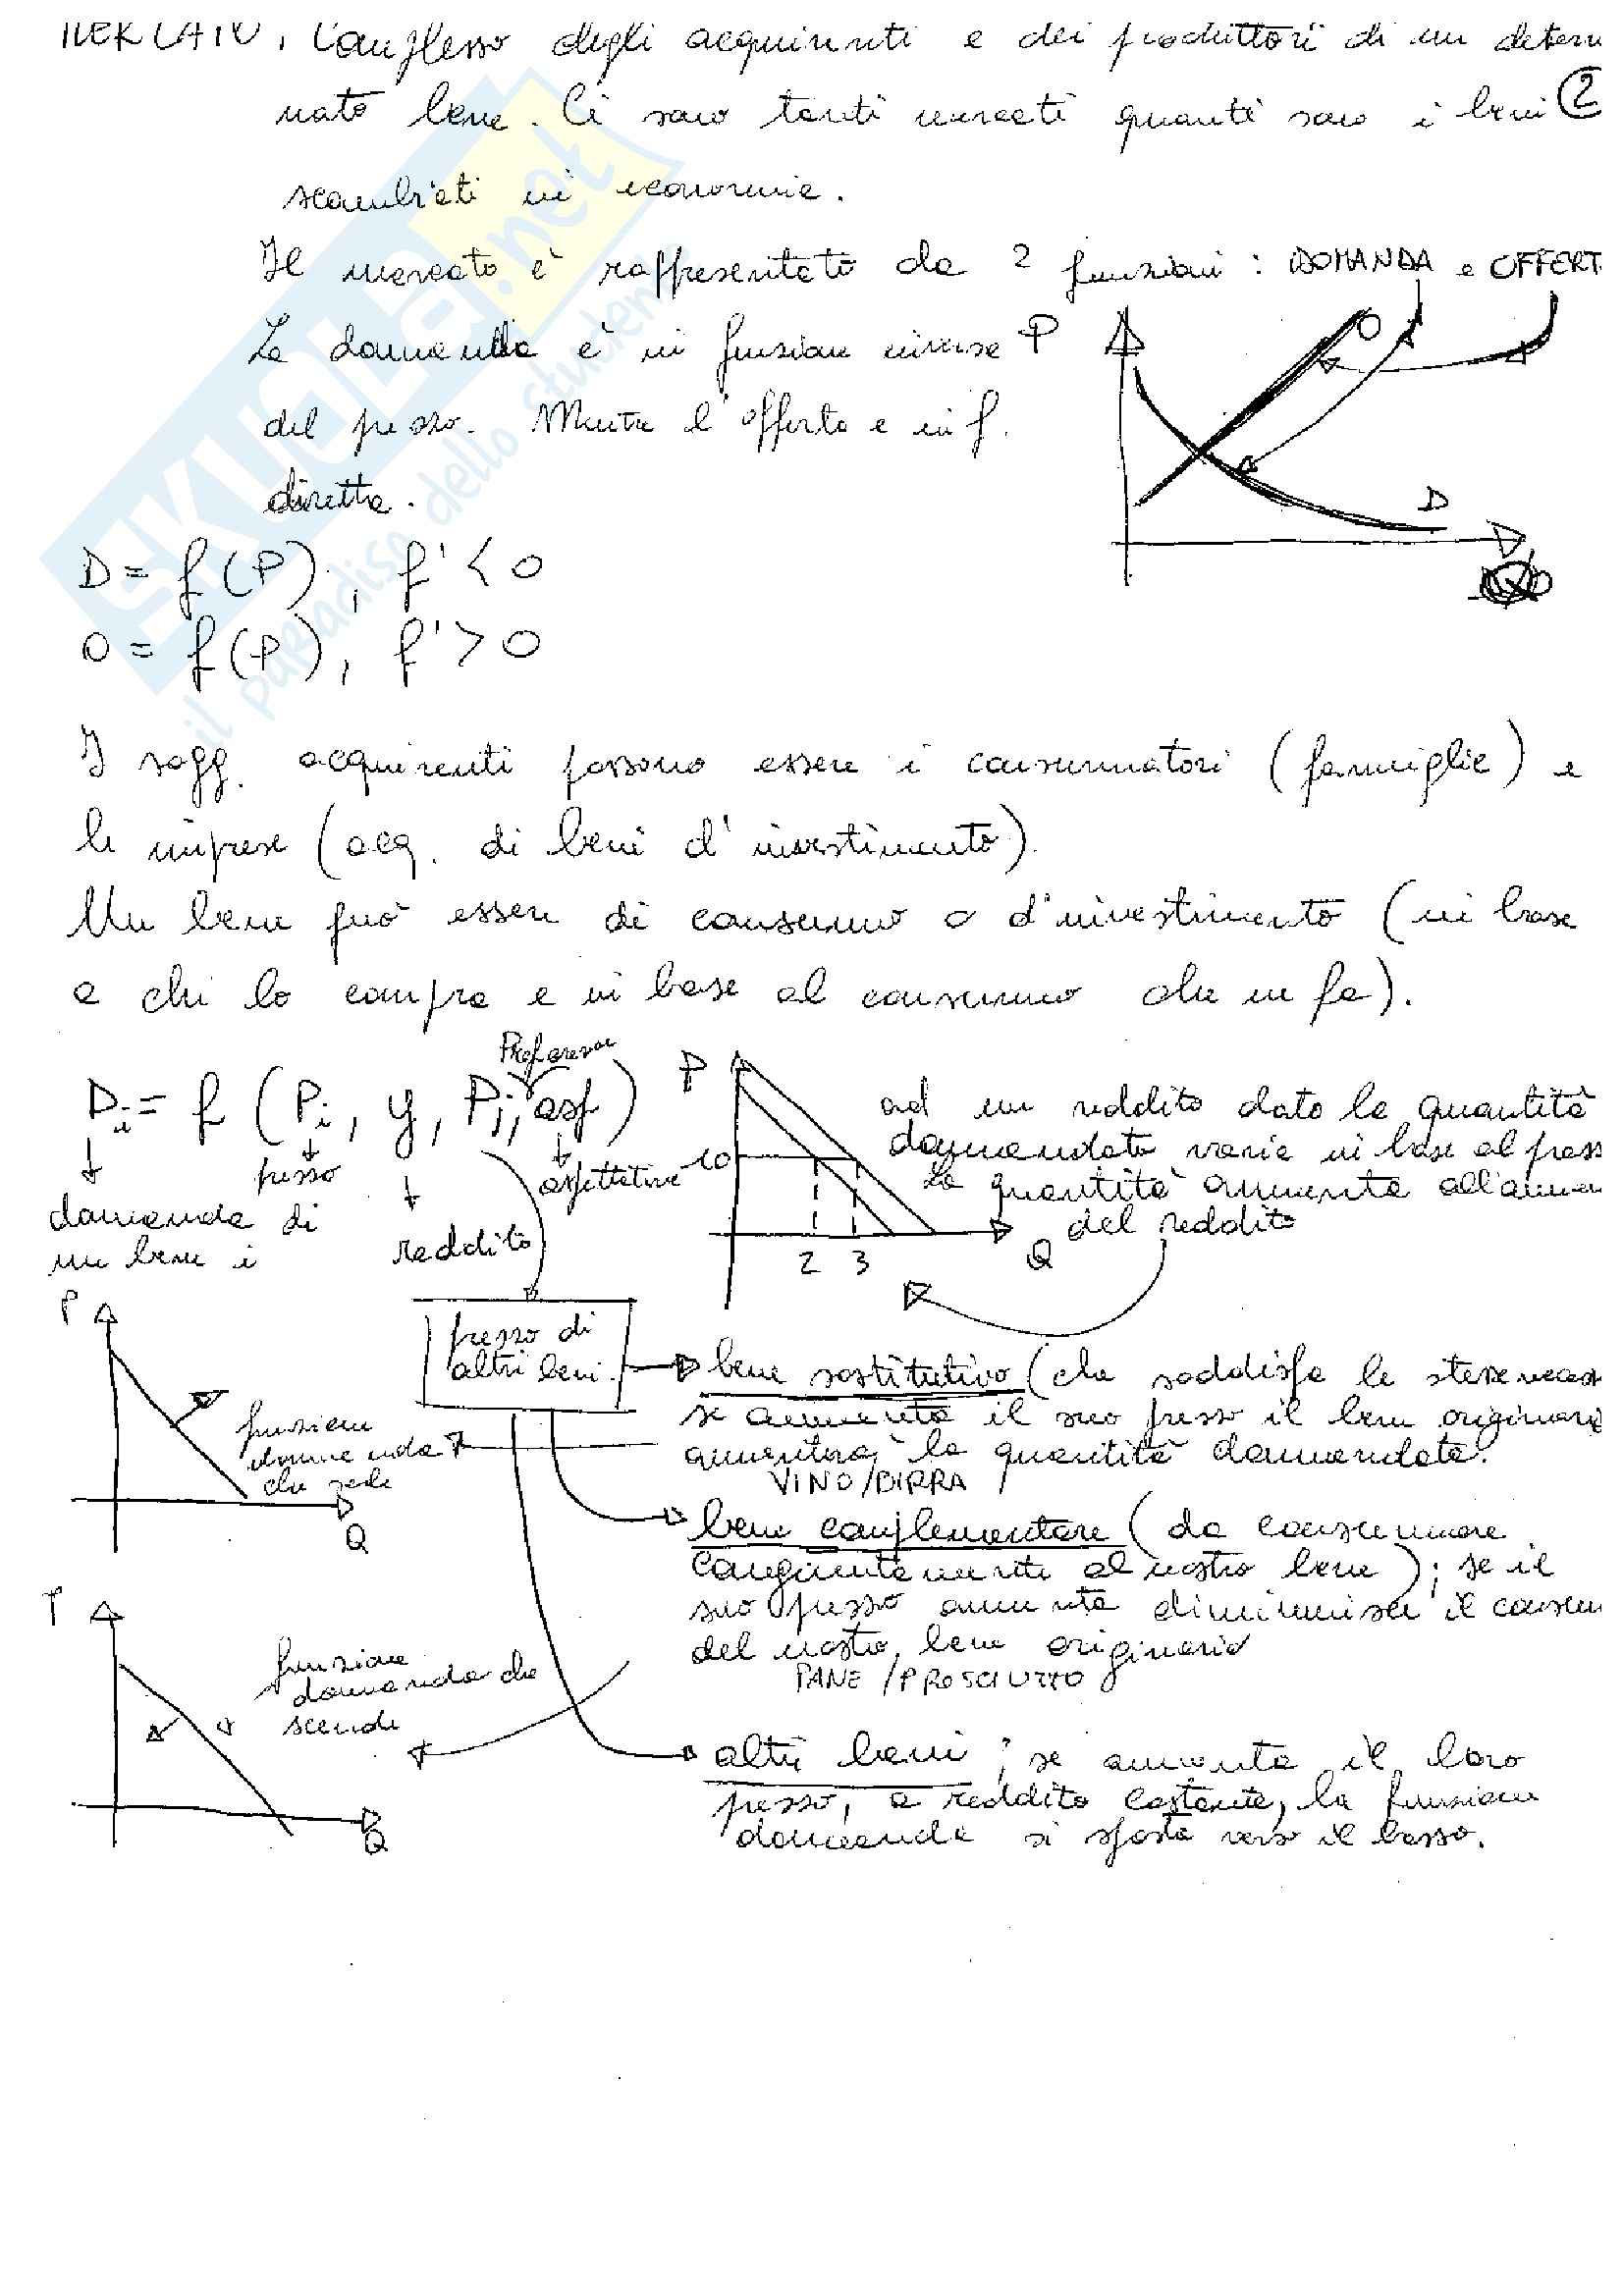 MERCATO: Complesso degli acquirenti e dei produttori di un determi
nato bene. Ci sono tanti mercati quanti sono i beni 2
scambiati in economia.
Il mercato è rappresentato da 2 funzioni: DOMANDA e OFFERT
La domanda è in funzione inversa
del prezzo. Mentre l'offerta e in f.
diretta.
P
O
D
D = f(P), f' < 0
O = f(P), f' > 0
I sogg. acquirenti possono essere i consumatori (famiglie) e
le imprese (acq. di beni d'investimento).
Un bene può essere di consumo o d'investimento (in base
a chi lo compra e in base al consumo che ne fa).
Preferenze
Di = f (Pi, y, Pj, asp)
domanda di
un bene i
prezzo
reddito
aspettative
P
10
2 3
Q
ad un reddito dato la quantità
domandata varia in base al prezz
La quantità aumenta all'aumen
del reddito
prezzo di
altri beni.
P
funzione
domanda
che sale
Q
bene sostitutivo (che soddisfa le stesse
se aumenta il suo prezzo il bene originario
aumenterà la quantità domandata.
VINO/BIRRA
bene complementare (da consumare
congiuntamente al nostro bene); se il
suo prezzo aumenta diminuisce il consum
del nostro bene originario
PANE/PROSCIUTTO
P
funzione
domanda che
scende
Q
altri beni; se aumenta il loro
prezzo, a reddito costante, la funzione
domanda si sposta verso il basso.
SKUOLA.net
il paradiso dello studente